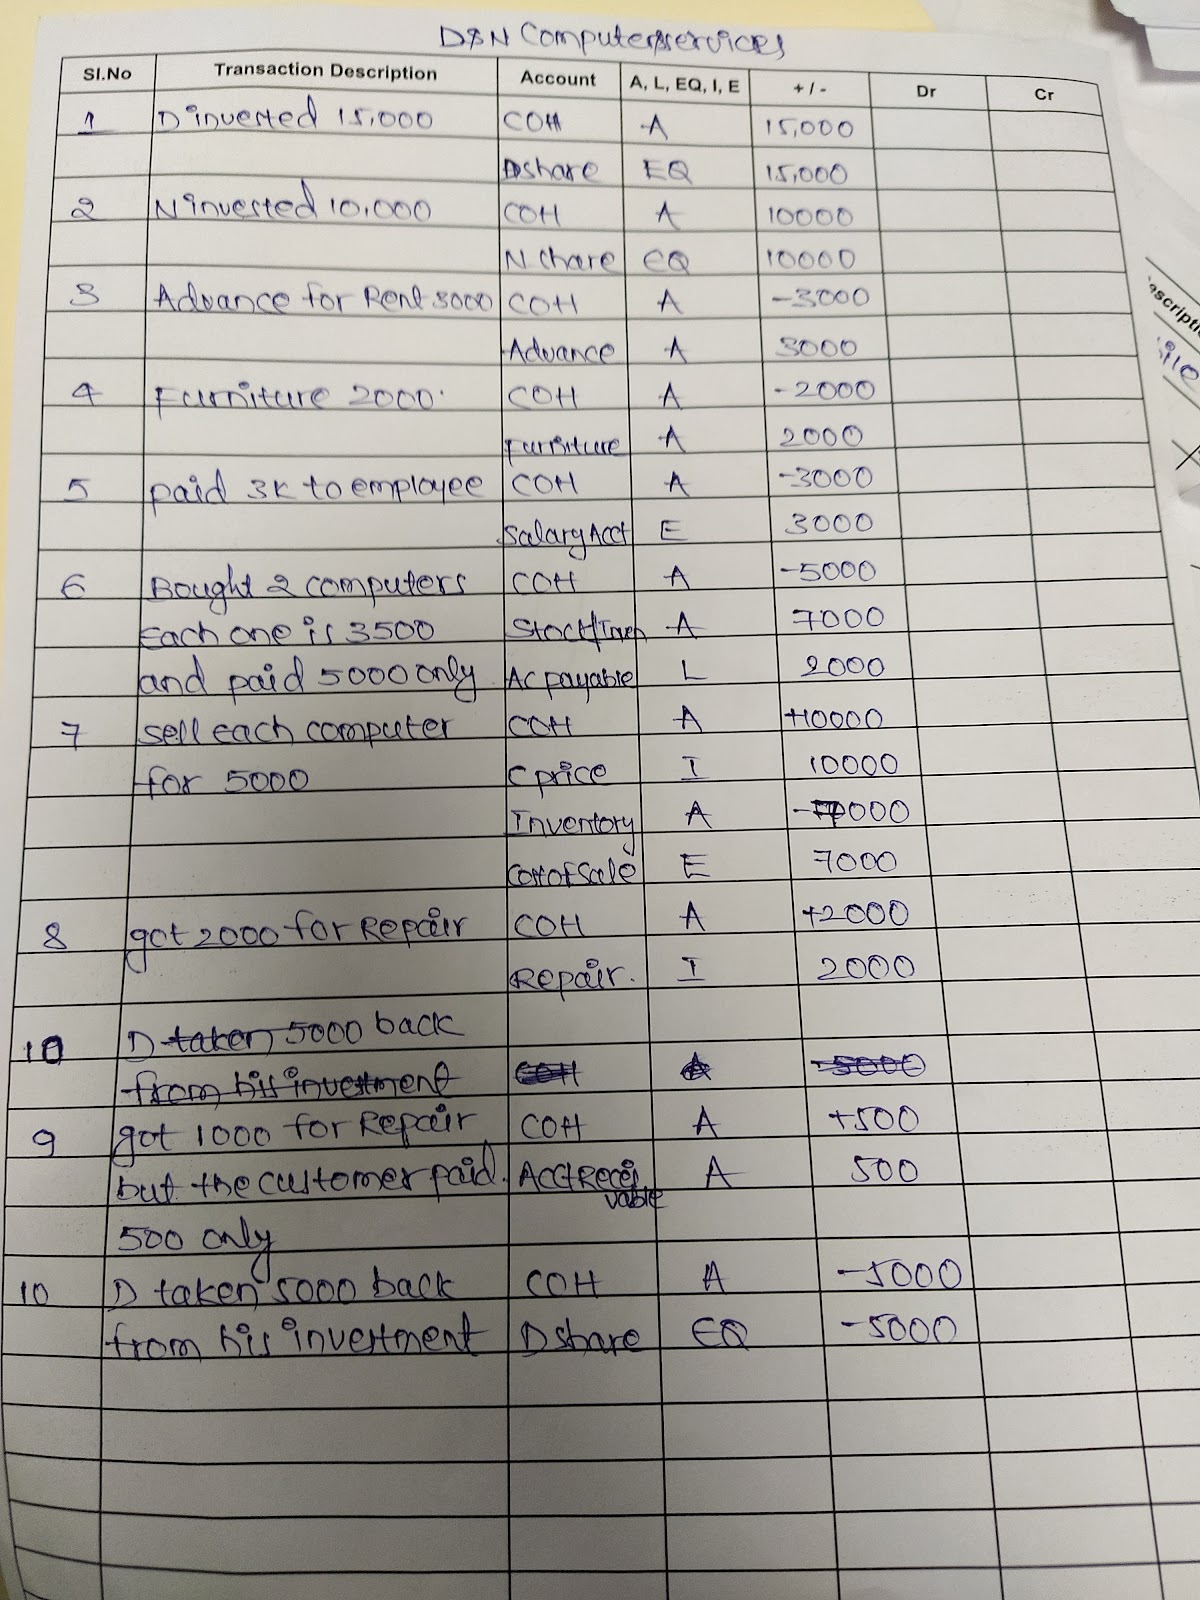 D&N Computer services
Sl.No Transaction Description Account A, L, EQ, I, E + / - Dr Cr
1 D invested 15,000 COH A 15,000
Dshare EQ 15,000
2 N invested 10,000 COH A 10000
N share EQ 10000
3 Advance for Rent 3000 COH A -3000
Advance A 3000
4 Furniture 2000. COH A -2000
Furniture A 2000
5 paid 3K to employee COH A -3000
Salary Acct E 3000
6 Bought 2 computers COH A -5000
Each one is 3500 Stock/Inven A 7000
and paid 5000 only Ac payable L 2000
7 sell each computer COH A +10000
for 5000 C price I 10000
Inventory A -7000
Cost of Sale E 7000
8 got 2000 for Repair COH A +2000
Repair. I 2000
10 D taken 5000 back
from his investment COH A -5000
9 got 1000 for Repair COH A +500
but the customer paid. Acct Recei A 500
vable
500 only
10 D taken 5000 back COH A -5000
from his investment D share EQ -5000